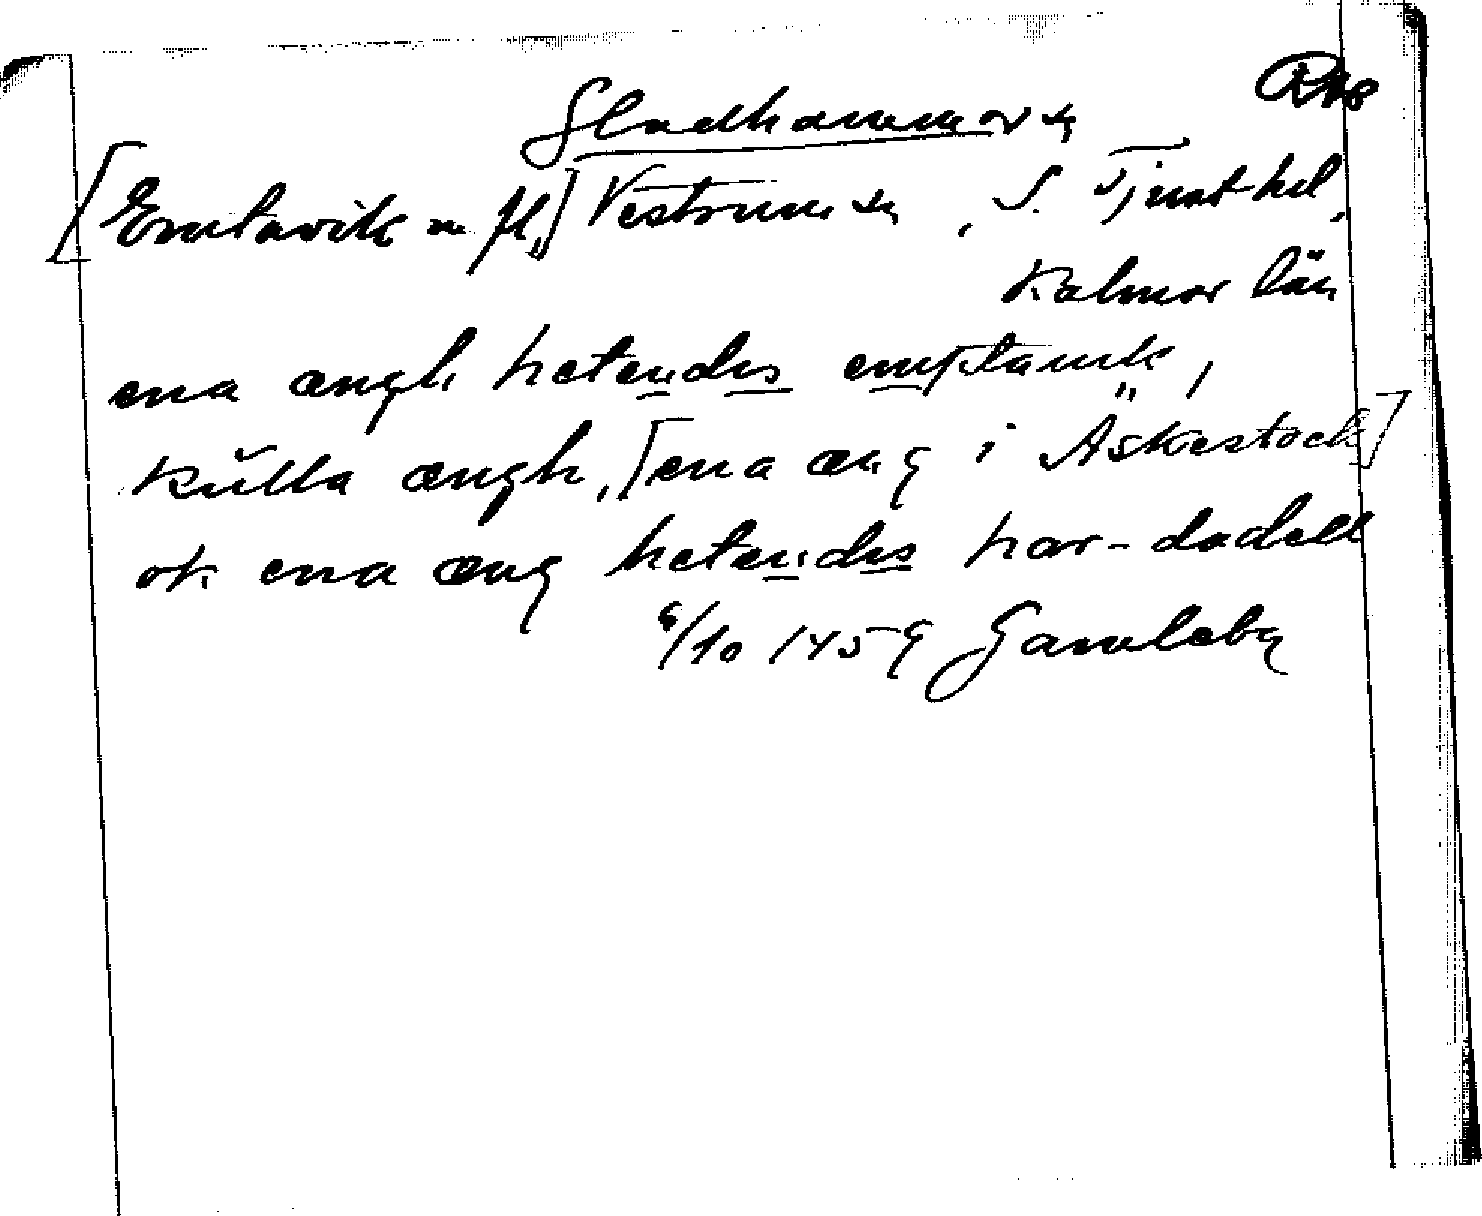 Gladhammars sn
[Emtavik m fl,] Västrum sn, S. Tjust hd,
Kalmar län
ena ængh hetendis emptauik,
kŭlla ængh, [ena æng i Äskestock]
ok ena æng hetendis har-dadell
6/10 1459 Gamleby